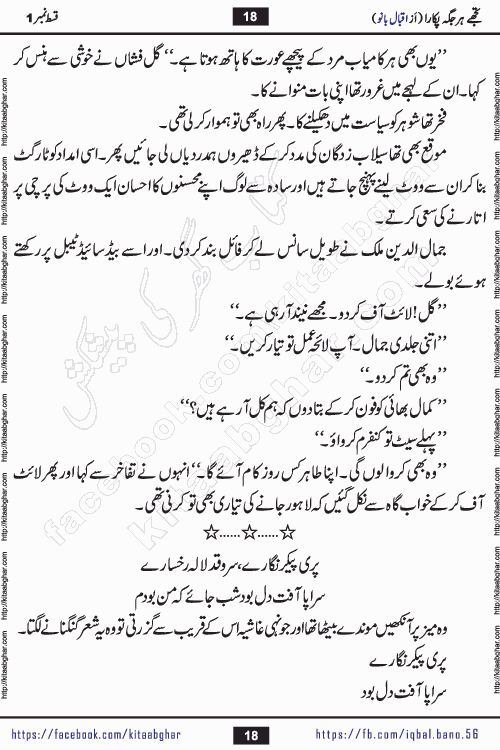 تجھے ہر جگہ پکارا (از اقبال بانو)
18
قسط نمبر 1
’’یوں بھی ہر کامیاب مرد کے پیچھے عورت کا ہاتھ ہوتا ہے۔‘‘ گل فشاں نے خوشی سے ہنس کر
کہا۔ ان کے لہجے میں غرور تھا اپنی بات منوانے کا۔
فخر تھا شوہر کو سیاست میں دھکیلنے کا۔ پھر راہ بھی تو ہموار کر لی تھی۔
موقع بھی تھا سیلاب زدگان کی مدد کر کے ڈھیروں ہمدردیاں لی جائیں پھر۔ اسی امداد کو ٹارگٹ
بنا کر ان سے ووٹ لینے پہنچ جاتے ہیں اور سادہ سے لوگ اپنے محسنوں کا احسان ایک ووٹ کی پرچی پر
اتارنے کی سعی کرتے۔
جمال الدین ملک نے طویل سانس لے کر فائل بند کر دی۔ اور اسے بیڈ سائیڈ ٹیبل پر رکھتے
ہوئے بولے۔
’’گل! لائٹ آف کر دو۔ مجھے نیند آ رہی ہے۔‘‘
’’اتنی جلدی جمال۔ آپ لائحہ عمل تو تیار کریں۔‘‘
’’وہ بھی تم کر دو۔‘‘
’’کمال بھائی کو فون کر کے بتا دوں کہ ہم کل آ رہے ہیں؟‘‘
’’پہلے سیٹ تو کنفرم کرواؤ۔‘‘
’’وہ بھی کروا لوں گی۔ اپنا طاہر کس روز کام آئے گا۔‘‘ انہوں نے تفاخر سے کہا اور پھر لائٹ
آف کر کے خواب گاہ سے نکل گئیں کہ لاہور جانے کی تیاری بھی تو کرنی تھی۔
☆……☆……☆
پری پیکر نگارے، سرو قد لالہ رخسارے
سراپا آفت دل بود شب جائے کہ من بودم
وہ میز پر آنکھیں موندے بیٹھا تھا اور جونہی غاشیہ اس کے قریب سے گزرتی تو وہ یہ شعر گنگنانے لگتا۔
پری پیکر نگارے
سراپا آفت دل بود
https://facebook.com/kitaabghar
18
https://fb.com/iqbal.bano.56
http://kitaabghar.com
کتاب گھر کی پیشکش
kitaabghar.com
facebook.com/kitaabghar